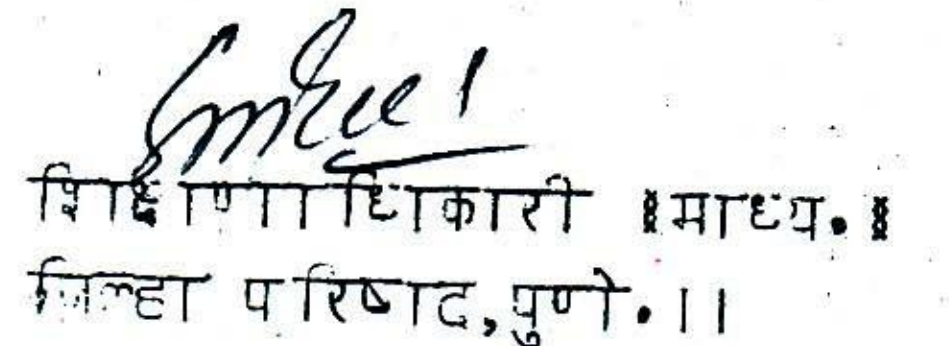 शिक्षाणाधिकारी ॥माध्य.॥
जिल्हा परिषाद,पुणे.।।